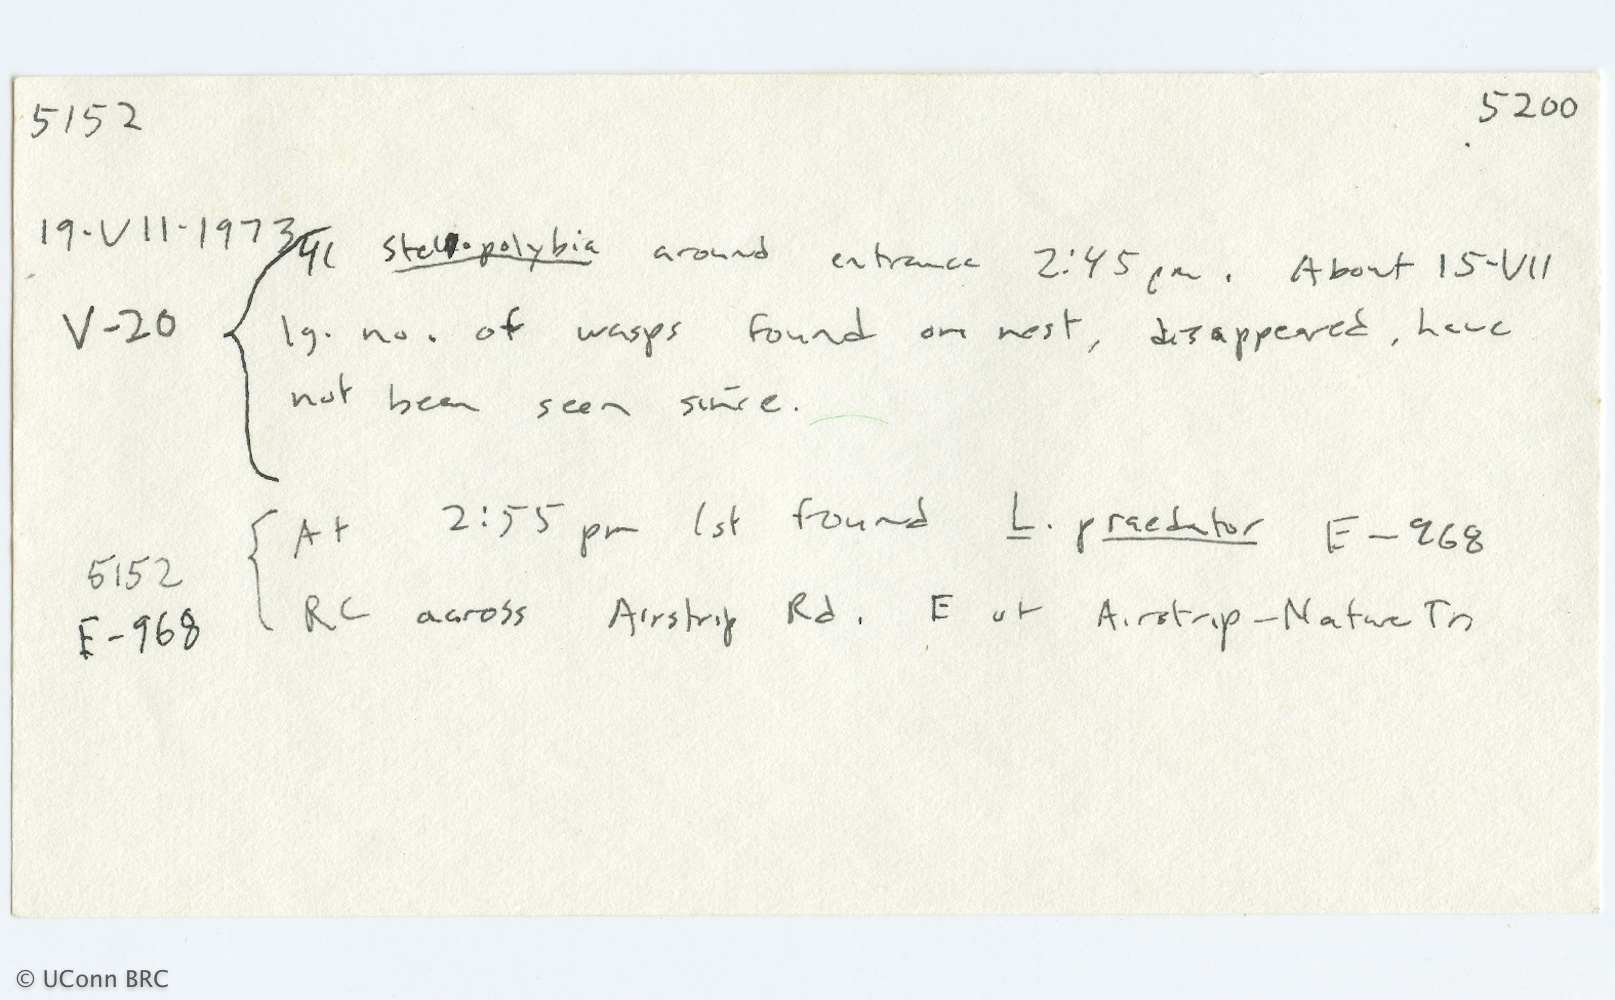 5152 5200
19-VII-1973 Stelopolybia around entrance 2:45 pm. About 15-VII
V-20 lg. no. of wasps found on nest, disappeared, have
not been seen since.
At 2:55 pm 1st found L. praedator E-968
5152
RC across Airstrip Rd. E of Airstrip-Nature Tr
E-968
© UConn BRC